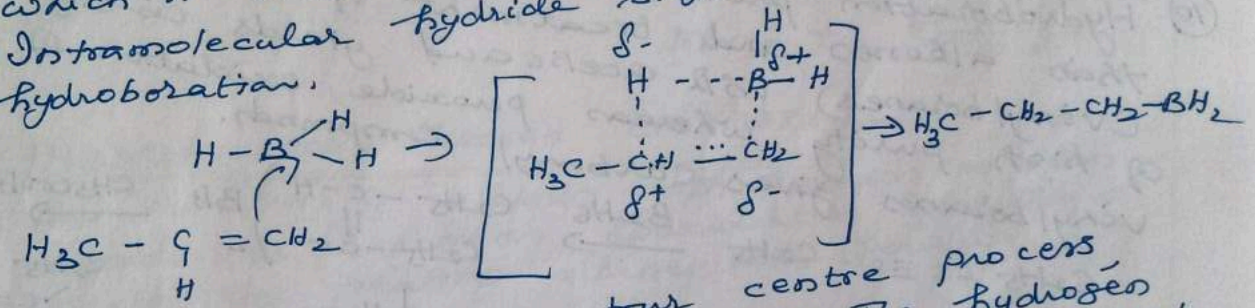 which
Intramolecular hydride
hydroboration.
H
δ- δ+
H --- B - H
H
H - B - H → H3C - CH = CH2 → H3C - CH2 - CH2 - BH2
δ+ δ-
H3C - C = CH2
H
centre process,
hydrogen